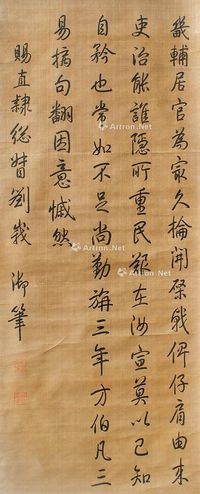 畿輔居官為冣久掄開棨戟俾仔肩由來
吏治能誰隱所重民艱在汝宣莫以已知
自矜也常如不足尚勤旃三年方伯凡三
易摛句翻因意慽然
賜直隸總督劉峩 御筆
Artron.Net